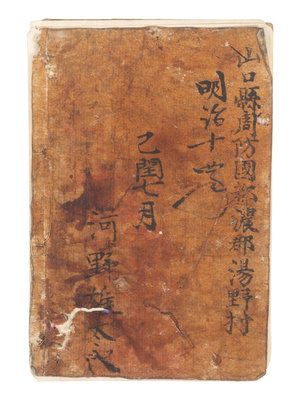 山口縣周防國都濃郡湯野村
明治十
閏七月
河野雄太